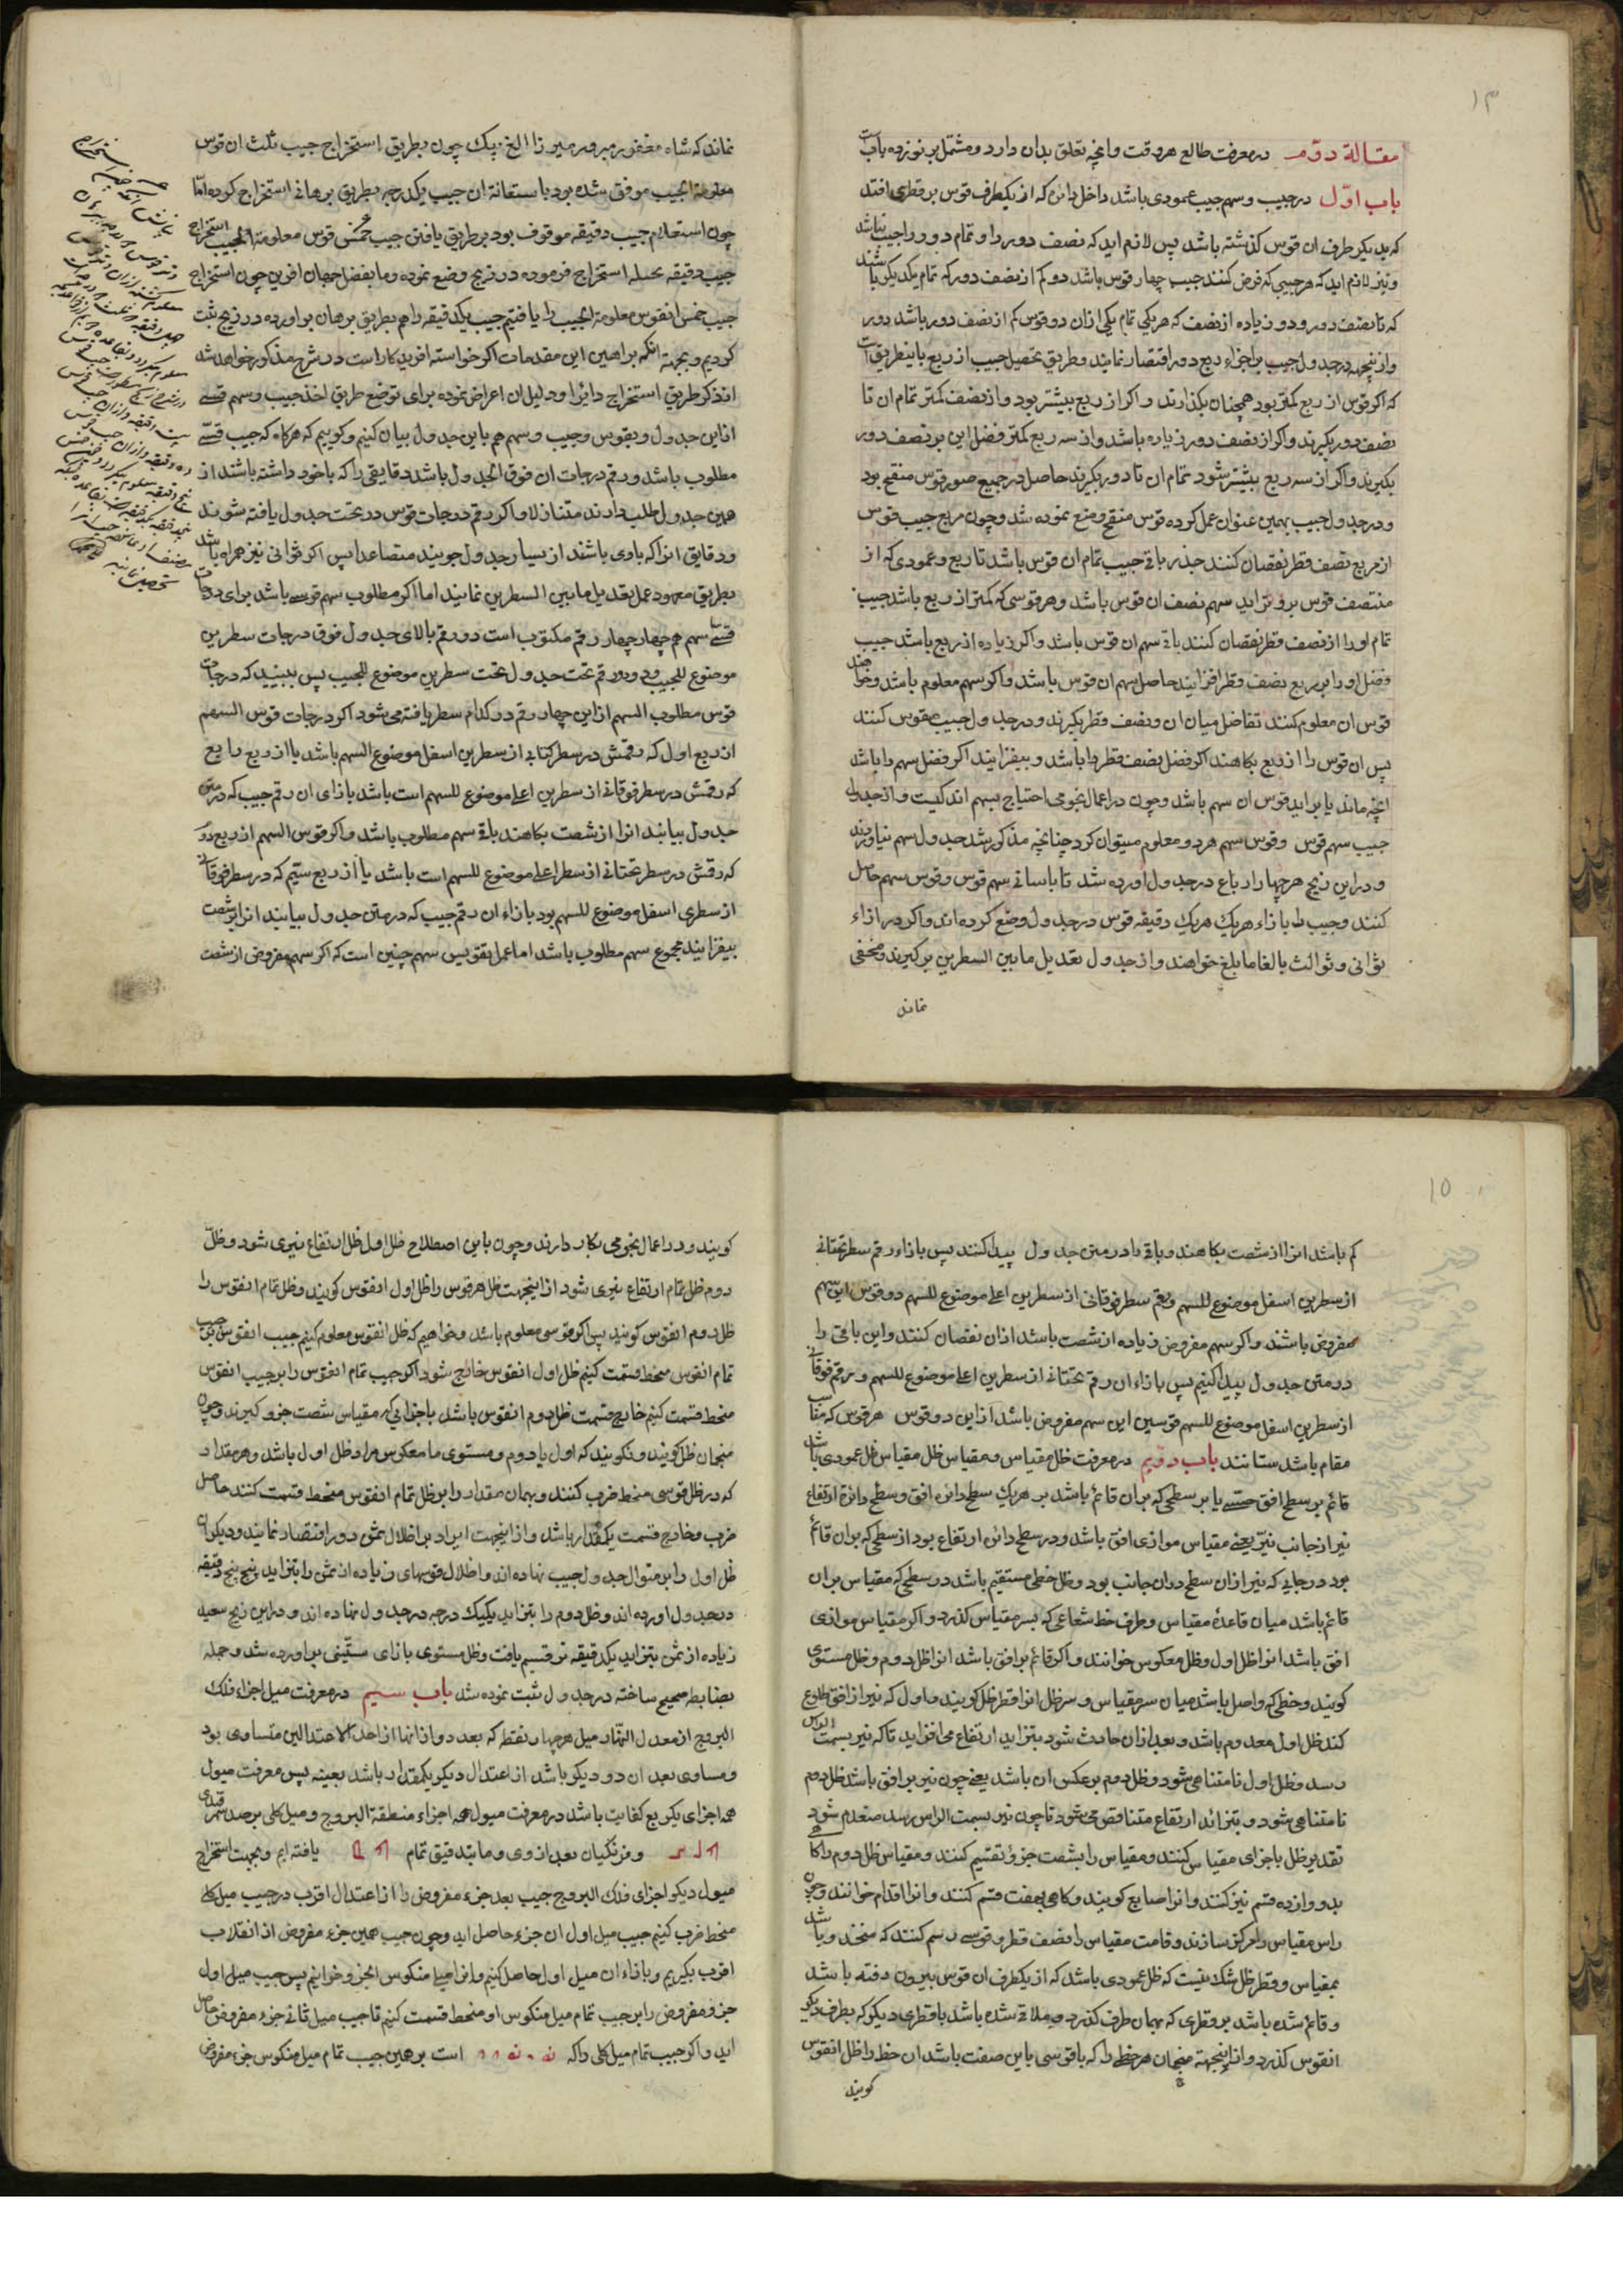 ۱۳
مقالة دوّم در معرفت طالع هر وقت و انچه تعلق بدان دارد و مشتمل بر نوزده باب است
باب اوّل در جیب و سهم جیب عمودی باشد داخل دائره که از یکطرف قوس بر قطری افتد
که بدیکر طرف ان قوس کذشته باشد پس لازم اید که نصف دور را و تمام دور را جیب نباشد
و نیز لازم اید که هر جیبی که فرض کنند جیب چهار قوس باشد دو کم از نصف دور که تمام یکدیکر باشند
که تا نصف دور و دو زیاده از نصف که هر یکی تمام یکی ازان دو قوس کم از نصف دور باشد دور
و ازینجهه در جدول جیب بر اجزاء ربع دور اقتصار نمایند و طریق تحصیل جیب از ربع باینطریق است
که اکر قوس از ربع کمتر بود همچنان بکذارند و اکر از ربع بیشتر بود و از نصف کمتر تمام ان تا
نصف دور بکیرند و اکر از نصف دور زیاده باشد و از سه ربع کمتر فضل این بر نصف دور
بکیرند و اکر از سه ربع بیشتر شود تمام ان تا دور بکیرند حاصل در جمیع صور قوس منقح بود
و در جدول جیب بهمین عنوان عمل کرده قوس منقح وضع نموده شد و چون مربع جیب قوس
از مربع نصف قطر نقصان کنند جذر باقی جیب تمام ان قوس باشد تا ربع و عمودی که از
منتصف قوس بر وتر اید سهم نصف ان قوس باشد و هر قوسی که کمتر از ربع باشد جیب
تمام او را از نصف قطر نقصان کنند باقی سهم ان قوس باشد و اکر زیاده از ربع باشد جیب
فضل او را بر ربع نصف قطر افزایند حاصل سهم ان قوس باشد و اکر سهم معلوم باشد و خواهند
قوس ان معلوم کنند تفاضل میان ان و نصف قطر بکیرند و در جدول جیب مقوس کنند
پس ان قوس را از ربع بکاهند اکر فضل نصف قطر را باشد و بیفزایند اکر فضل سهم را باشد
انچه ماند یا براید قوس ان سهم باشد و چون در اعمال نجومی احتیاج بسهم اندکیست و از جدول
جیب سهم قوس و قوس سهم هر دو معلوم میتوان کرد چنانچه مذکور شد جدول سهم نیاوردند
و در این زیج هر چهار ارباع در جدول اورده شد تا باسانی سهم قوس و قوس سهم حاصل
کنند و جیب را بازاء هر یک هر یک دقیقه قوس در جدول وضع کرده اند و اکر در ازاء
ثوانی و ثوالث بالغا ما بلغ خواهند و از جدول تعدیل مابین السطرین برکیرند و مخفی
نماند
نماند که شاه مغفور مبرور میرزا الغ بیک چون بطریق استخراج جیب ثلث ان قوس
معلومة الجیب موفق شده بود باستعانة ان جیب یکدرجه بطریق برهانی استخراج کرده امّا
چون استعلام جیب دقیقه موقوف بود بر طریق یافتن جیب خمس قوس معلومة الجیب استخراج
جیب دقیقه بحیله استخراج فرموده در زیج وضع نموده و ما بفضل جهان افرین چون استخراج
جیب خمس انقوس معلومة الجیب را یافتیم جیب یکدقیقه را هم بطریق برهان براورده در زیج ثبت
کردیم و بجهة انکه براهین این مقدمات اکر خواسته افریدکار است در شرح مذکور خواهد شد
از ذکر طریق استخراج دائرا و دلیل ان اعراض نموده برای توضیح طریق اخذ جیب و سهم قسی
از این جدول و بقوس و جیب و سهم هم باین جدول بیان کنیم و کوییم که هرکاه که جیب قسیّ
مطلوب باشد و رقم درجات ان فوق الجدول باشد دقایقی را که با خود داشته باشند از
همین جدول طلب دارند متنازلا و اکر رقم درجات قوس در تحت جدول یافته شوند
و دقایق انرا که باوی باشند از یسار جدول جویند متصاعدا پس اکر ثوانی نیز همراه باشد
بطریق معهود عمل بتعدیل مابین السطرین نمایند اما اکر مطلوب سهم قوسی باشد برای درجات
قسیّ سهم هم چهار چهار رقم مکتوب است دو رقم بالای جدول فوق درجات سطرین
موضوع للجیب و دو رقم تحت جدول تحت سطرین موضوع للجیب پس ببینید که درجات
قوس مطلوب السهم از این چهار رقم در کدام سطر یافته میشود اکر درجات قوس السهم
از ربع اول که رقمش در سطر کتابی از سطرین اسفل موضوع السهم باشد یا از ربع رابع
که رقمش در سطر فوقانی از سطرین اعلی موضوع للسهم است باشد بازای ان رقم جیب که در متن
جدول بیابند انرا از شصت بکاهند باقی سهم مطلوب باشد و اکر قوس السهم از ربع دوّم
که رقمش در سطر تحتانی از سطر اعلی موضوع للسهم است باشد یا از ربع سیّم که در سطر فوقانی
از سطری اسفل موضوع للسهم بود بازاء ان رقم جیب که در متن جدول بیابند انرا بر شصت
بیفزایند مجموع سهم مطلوب باشد اما عمل بتقویس سهم چنین است که اکر سهم مفروض از شصت
۱۵
کم باشد انرا از شصت بکاهند و باقی را در متن جدول پیدا کنند پس بازاء رقم سطر تحتانی
از سطرین اسفل موضوع للسهم و رقم سطر فوقانی از سطرین اعلی موضوع للسهم دو قوس این سهم
مفروض باشند و اکر سهم مفروض زیاده از شصت باشد ازان نقصان کنند و این باقی را
در متن جدول پیدا کنیم پس بازاء ان رقم تحتانی از سطرین اعلی موضوع للسهم و رقم فوقانی
از سطرین اسفل موضوع للسهم قوسین این سهم مفروض باشد از این دو قوس هر قوس که مناسب
مقام باشد ستانند باب دویم در معرفت ظل مقیاس و مقیاس ظل عمودی باشد
قائم بر سطح افق حسّی یا بر سطحی که بران قائم باشد بر هریک سطح دائره افق و سطح دائرهٔ ارتفاع
نیر از جانب نیّر یعنی مقیاس موازی افق باشد و در سطح دائره ارتفاع بود از سطحی که بران قائم
بود در جایی که نیر ازان سطح دران جانب بود و ظل خطی مستقیم باشد در سطحی که مقیاس بران
قائم باشد میان قاعدهٔ مقیاس و طرف خط شعاعی که بسر مقیاس کذرد و اکر مقیاس موازی
افق باشد انرا ظل اول و ظل معکوس خوانند و اکر قائم بر افق باشد انرا ظل دوم و ظل مستوی
کویند و خطی که واصل باشد میان سر مقیاس و سر ظل انرا قطر ظل کویند و اول که نیر از افق طلوع
کند ظل اول معدوم باشد و بعد ازان حادث شود بتزاید ارتفاع می افزاید تا که نیر بسمت الراس
رسد و ظل اول نامتناهی شود و ظل دوم بر عکس ان باشد یعنی چون نیر بر افق باشد ظل دوم
نامتناهی شود و بتزائد ارتفاع متناقص می شود تا چون نیر بسمت الراس رسد منعدم شود
تقدیر ظل باجزای مقیاس کنند و مقیاس را بشصت جزؤ تقسیم کنند و مقیاس ظل دوم را کاه
بدوازده قسم نیز کنند و انرا اصابع کویند و کاهی بهفت قسم کنند و انرا اقدام خوانند و چون
راس مقیاس را مرکز سازند و قامت مقیاس را نصف قطر و قوسی رسم کنند که منخد و باشد
بمقیاس و قطر ظل شک نیست که ظل عمودی باشد که از یکطرف ان قوس بیرون رفته باشد
و قائم شده باشد بر قطری که بهمان طرف کذرد و ملاقی شده باشد با قطری دیکر که بطرف دیکر
انقوس کذرد و ازینجهته منجمان هر خطی را که با قوسی باین صفت باشد ان خط را ظل انقوس
کویند
کویند و در اعمال نجومی بکار دارند و چون باین اصطلاح ظل اول ظل ارتفاع نیری شود و ظلّ
دوم ظل تمام ارتفاع نیری شود از اینجهت ظل هر قوس را ظل اول انقوس کویند و ظل تمام انقوس را
ظل دوم انقوس کویند پس اکر قوسی معلوم باشد و خواهیم که ظل انقوس معلوم کنیم جیب انقوس بر جیب
تمام انقوس منحط قسمت کنیم ظل اول انقوس خارج شود و اکر جیب تمام انقوس را بر جیب انقوس
منحط قسمت کنیم خارج قسمت ظل دوم انقوس باشد باجزایی که مقیاس شصت جزو کیرند و چون
منجمان ظل کویند و نکویند که اول یا دوم و مستوی یا معکوس مراد ظل اول باشد و هر مقدار
که در ظل قوسی منحط ضرب کنند و بهمان مقدار را بر ظل تمام انقوس منحط قسمت کنند حاصل
ضرب و خارج قسمت یکمقدار باشد و از اینجهت ایراد بر اظلال ثمن دور اقتصار نمایند و دیکران
ظل اول را بر منوال جدول جیب نهاده اند و اظلال قوسهای زیاده از ثمن را بتزاید پنج پنج دقیقه
در جدول اورده اند و ظل دوم را بتزاید یکیک درجه در جدول نهاده اند و در این زیج سعید
زیاده از ثمن بتزاید یکدقیقه ترقیم یافت و ظل مستوی بازای ستّینی براورده شد و جمله
بضابطه صحیح ساخته در جدول ثبت نموده شد باب سیم در معرفت میل اجزاء فلک
البروج از معدل النهار میل هر چهار نقطه که بعد دو از انها از احد الاعتدالین متساوی بود
و مساوی بعد ان دو دیکر باشد از اعتدال دیکر یکمقدار باشد بعینه پس معرفت میول
همه اجزای یکربع کفایت باشد در معرفت میول همه اجزاء منطقة البروج و میل کلی برصد سمرقندی
و فرنکیان بعد از وی و ما بتدقیق تمام یافته ایم و بجهت استخراج
میول دیکر اجزای فلک البروج جیب بعد جزء مفروض را از اعتدال اقرب در جیب میل کلی
منحط ضرب کنیم جیب میل اول ان جزء حاصل اید و چون جیب همین جزء مفروض از انقلاب
اقرب بکیریم و بازاء ان میل اول حاصل کنیم و انرا میل منکوس الجزء خوانیم پس جیب میل اول
جزو مفروض را بر جیب تمام میل منکوس او منحط قسمت کنیم تا جیب میل ثانی جزء مفروض حاصل
اید و اکر جیب تمام میل کلی را که است بر همین جیب تمام میل منکوس جزء مفروض